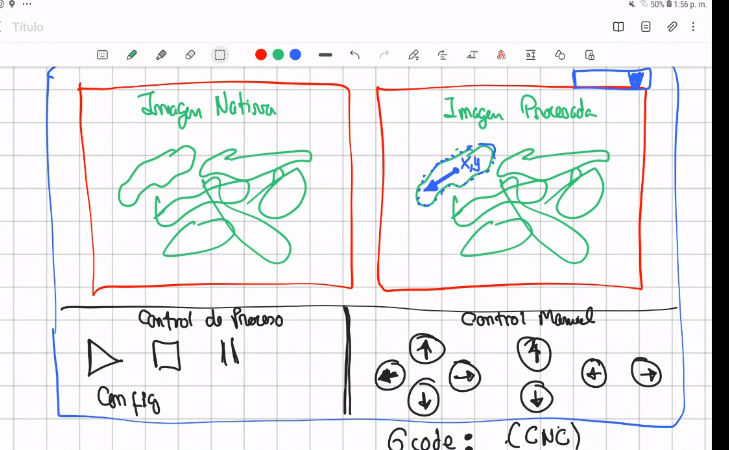 50% 1:56 p. m.
Título
Imagen Nativa
Imagen Procesada
x,y
Control de Proceso
Control Manuel
Config
Gcode: (CNC)